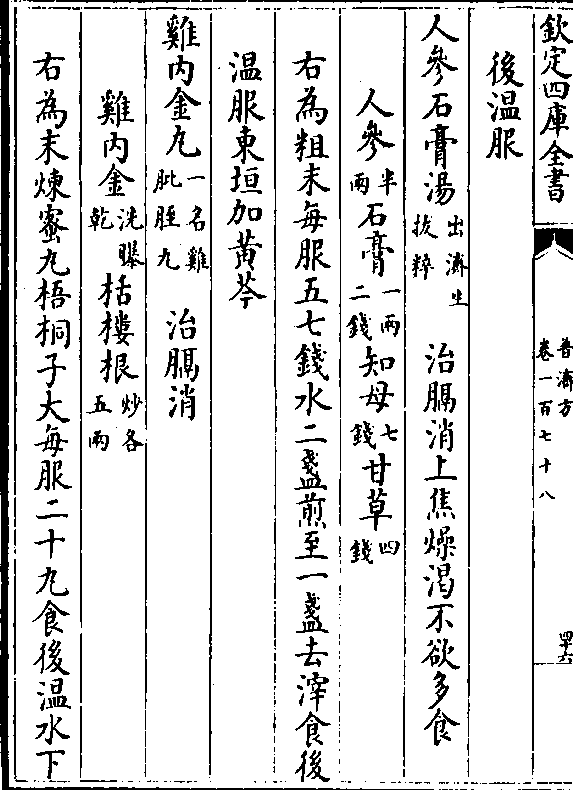 欽定四庫全書
普濟方
卷一百七十八
四十六
後温服
人參石膏湯出濟生拔粹 治膈消上焦燥渴不欲多食
人參半兩石膏一兩二錢知母七錢甘草四錢
右為粗末每服五七錢水二盞煎至一盞去滓食後
温服東垣加黃芩
雞內金丸一名雞肶胵丸 治膈消
雞內金洗曝乾栝樓根炒各五兩
右為末煉蜜丸梧桐子大每服二十丸食後温水下